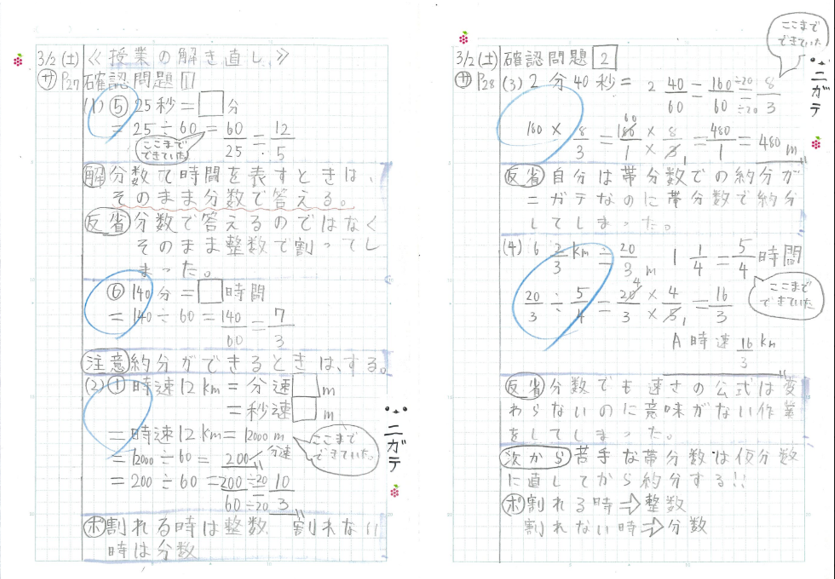 3/2(土)《授業の解き直し》
サ P27 確認問題 1
(1) ⑤ 25秒=□分
= 25÷60 = 60/25 = 12/5
ここまでできていた
解 分数で時間を表すときは、
そのまま分数で答える。
反省 分数で答えるのではなく
そのまま整数で割ってし
まった。
⑥ 140分=□時間
= 140÷60 = 140/60 = 7/3
注意 約分ができるときは、する。
(2) ① 時速12km=分速□m
=秒速□m
=時速12km=12000m
=12000÷60=200 分速
=200÷60=200/60 ÷20/÷20 10/3
ここまでできていた。
ニガテ
ポ 割れる時は整数 割れない
時は分数
3/2(土) 確認問題 2
サ P28 (3) 2分40秒= 2 40/60 = 160/60 ÷20/÷20 8/3
ここまでできていた
ニガテ
180 × 8/3 = 180/1 × 8/3 = 480/1 = 480m
60 1
反省 自分は帯分数での約分が
ニガテなのに帯分数で約分
してしまった。
(4) 6 2/3 km = 20/3 m 1 1/4 = 5/4 時間
20/3 ÷ 5/4 = 20/3 × 4/5 = 16/3
4 1
ここまでできていた
A 時速 16/3 km
反省 分数でも速さの公式は変
わらないのに意味がない作業
をしてしまった。
次から 苦手な帯分数は仮分数
に直してから約分する!!
ポ 割れる時⇒整数
割れない時⇒分数